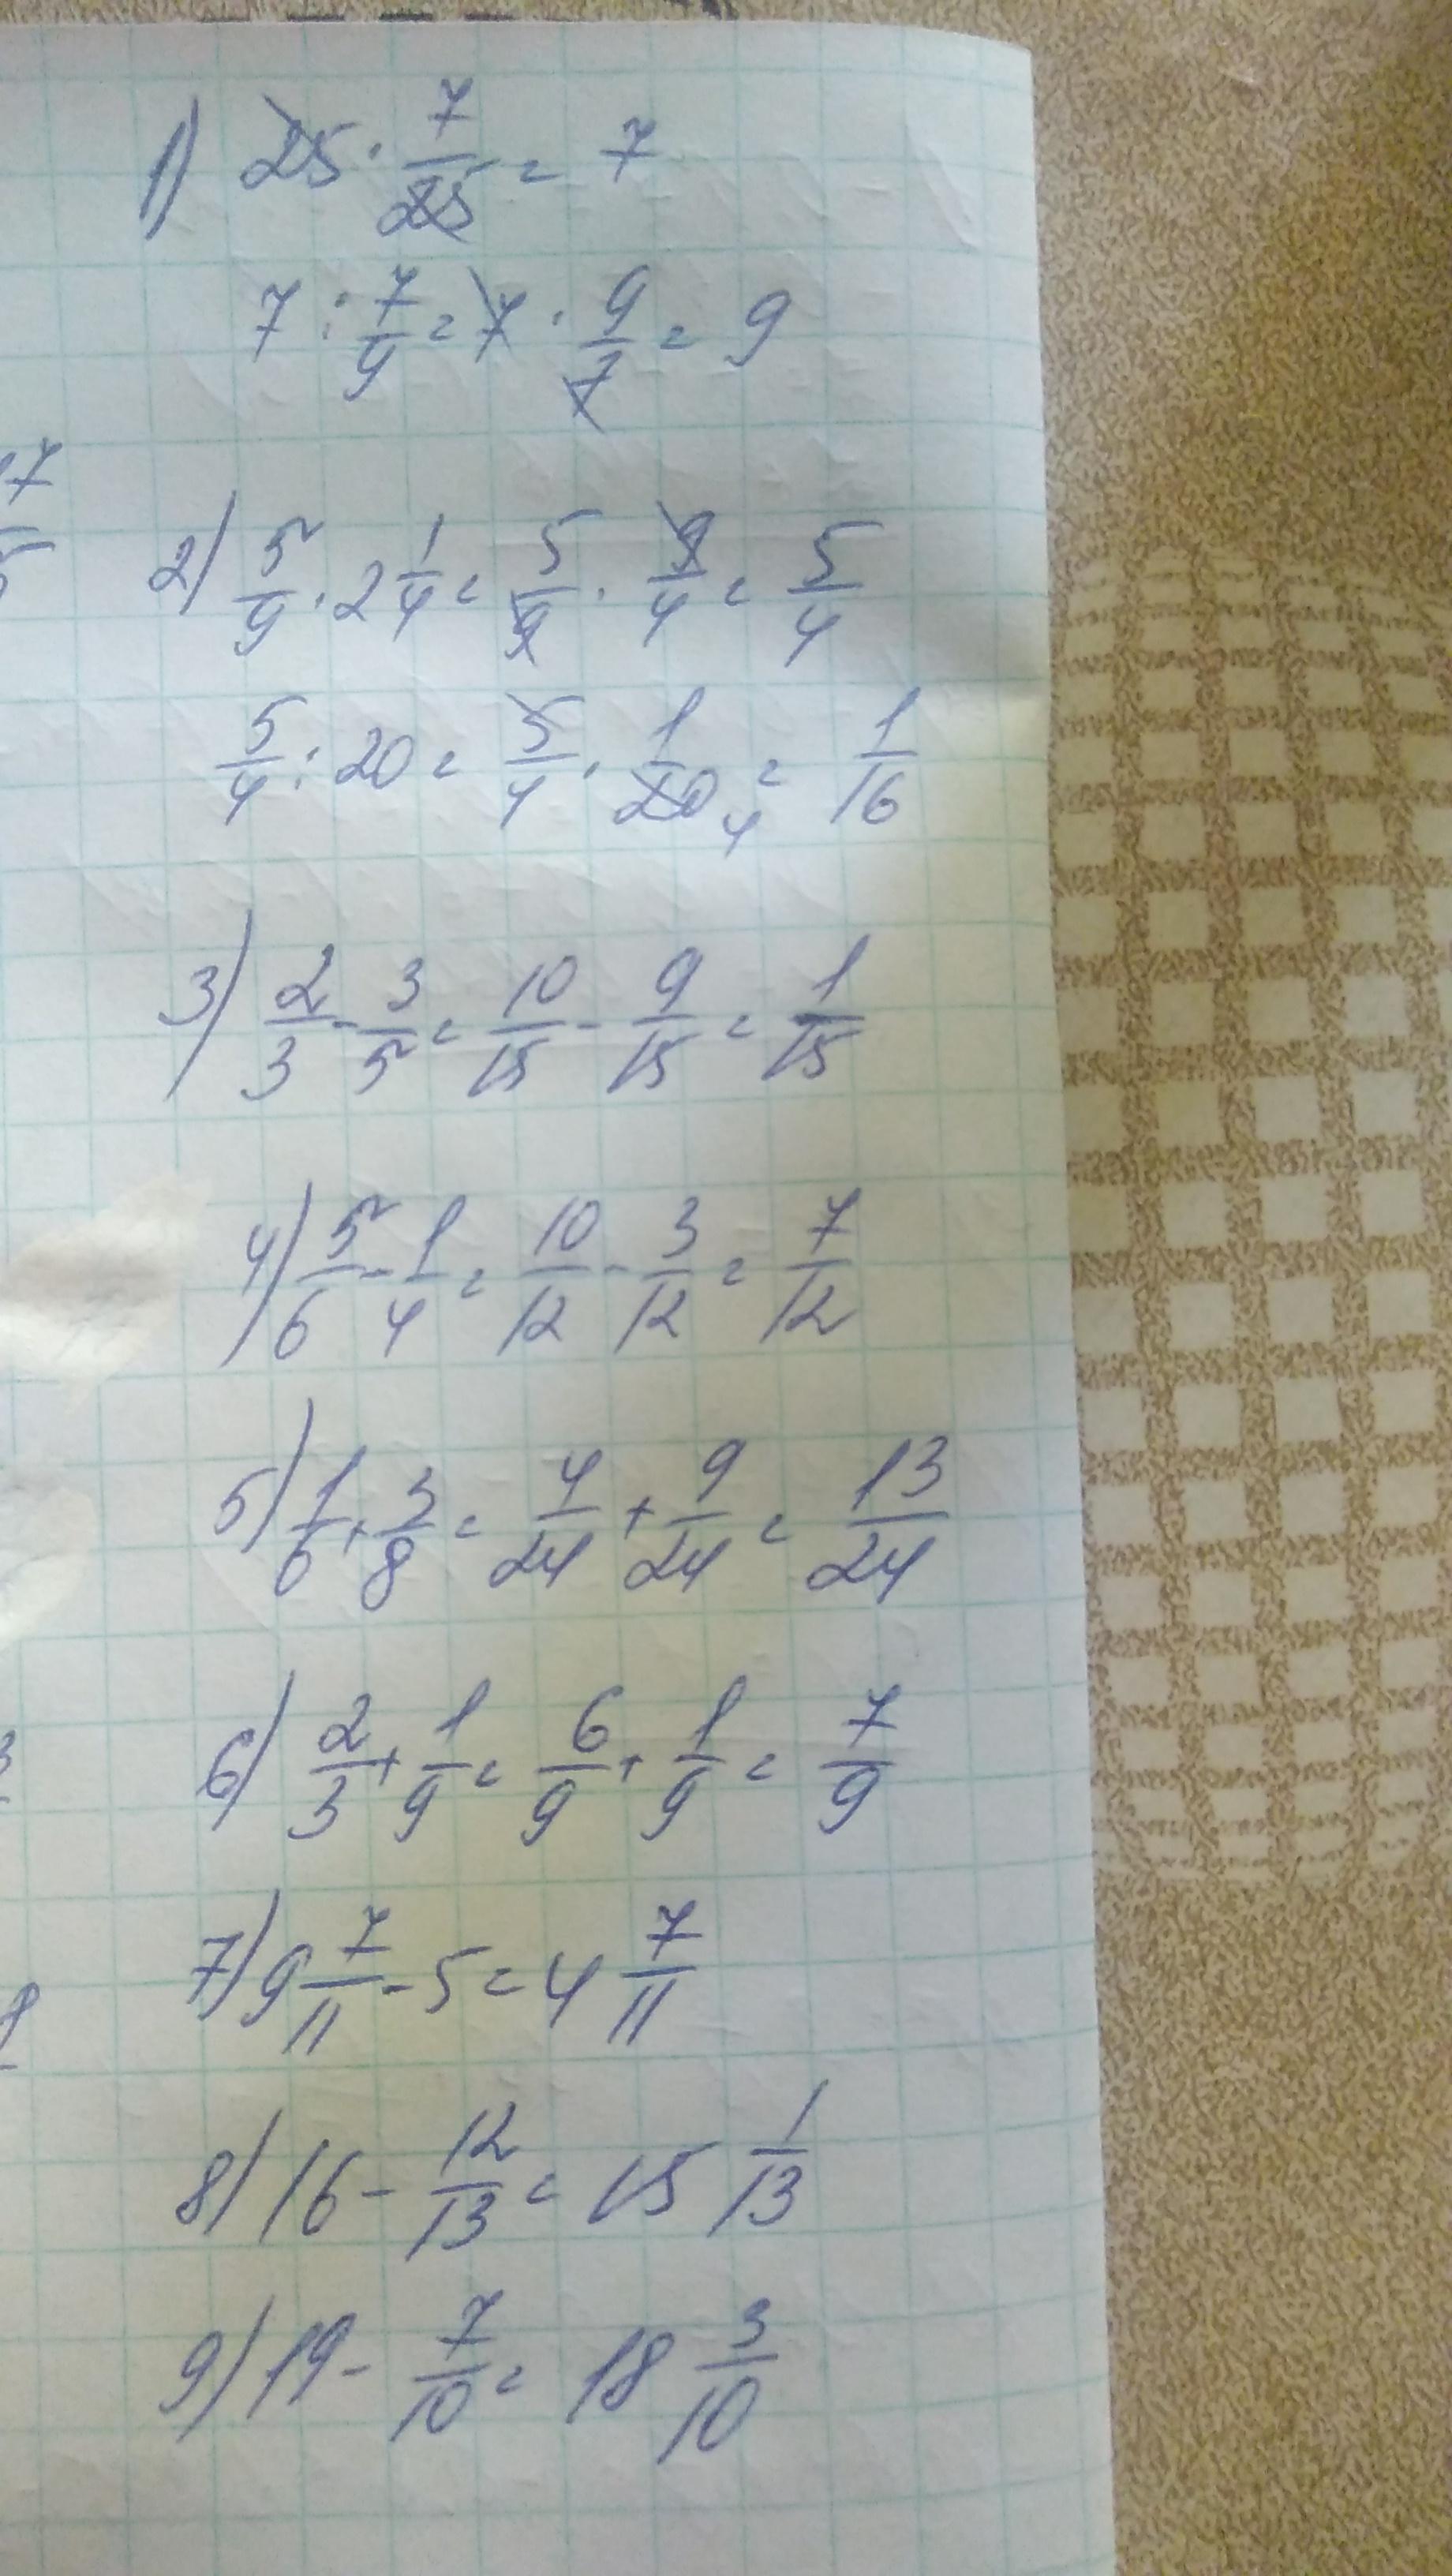 1) 25 · 7/25 = 7
7 : 7/9 = 7 · 9/7 = 9
2) 5/9 · 2 1/4 = 5/9 · 9/4 = 5/4
5/4 : 20 = 5/4 · 1/20 4 = 1/16
3) 2/3 - 3/5 = 10/15 - 9/15 = 1/15
4) 5/6 - 1/4 = 10/12 - 3/12 = 7/12
5) 1/6 + 3/8 = 4/24 + 9/24 = 13/24
6) 2/3 + 1/9 = 6/9 + 1/9 = 7/9
7) 9 7/11 - 5 = 4 7/11
8) 16 - 12/13 = 15 1/13
9) 19 - 7/10 = 18 3/10